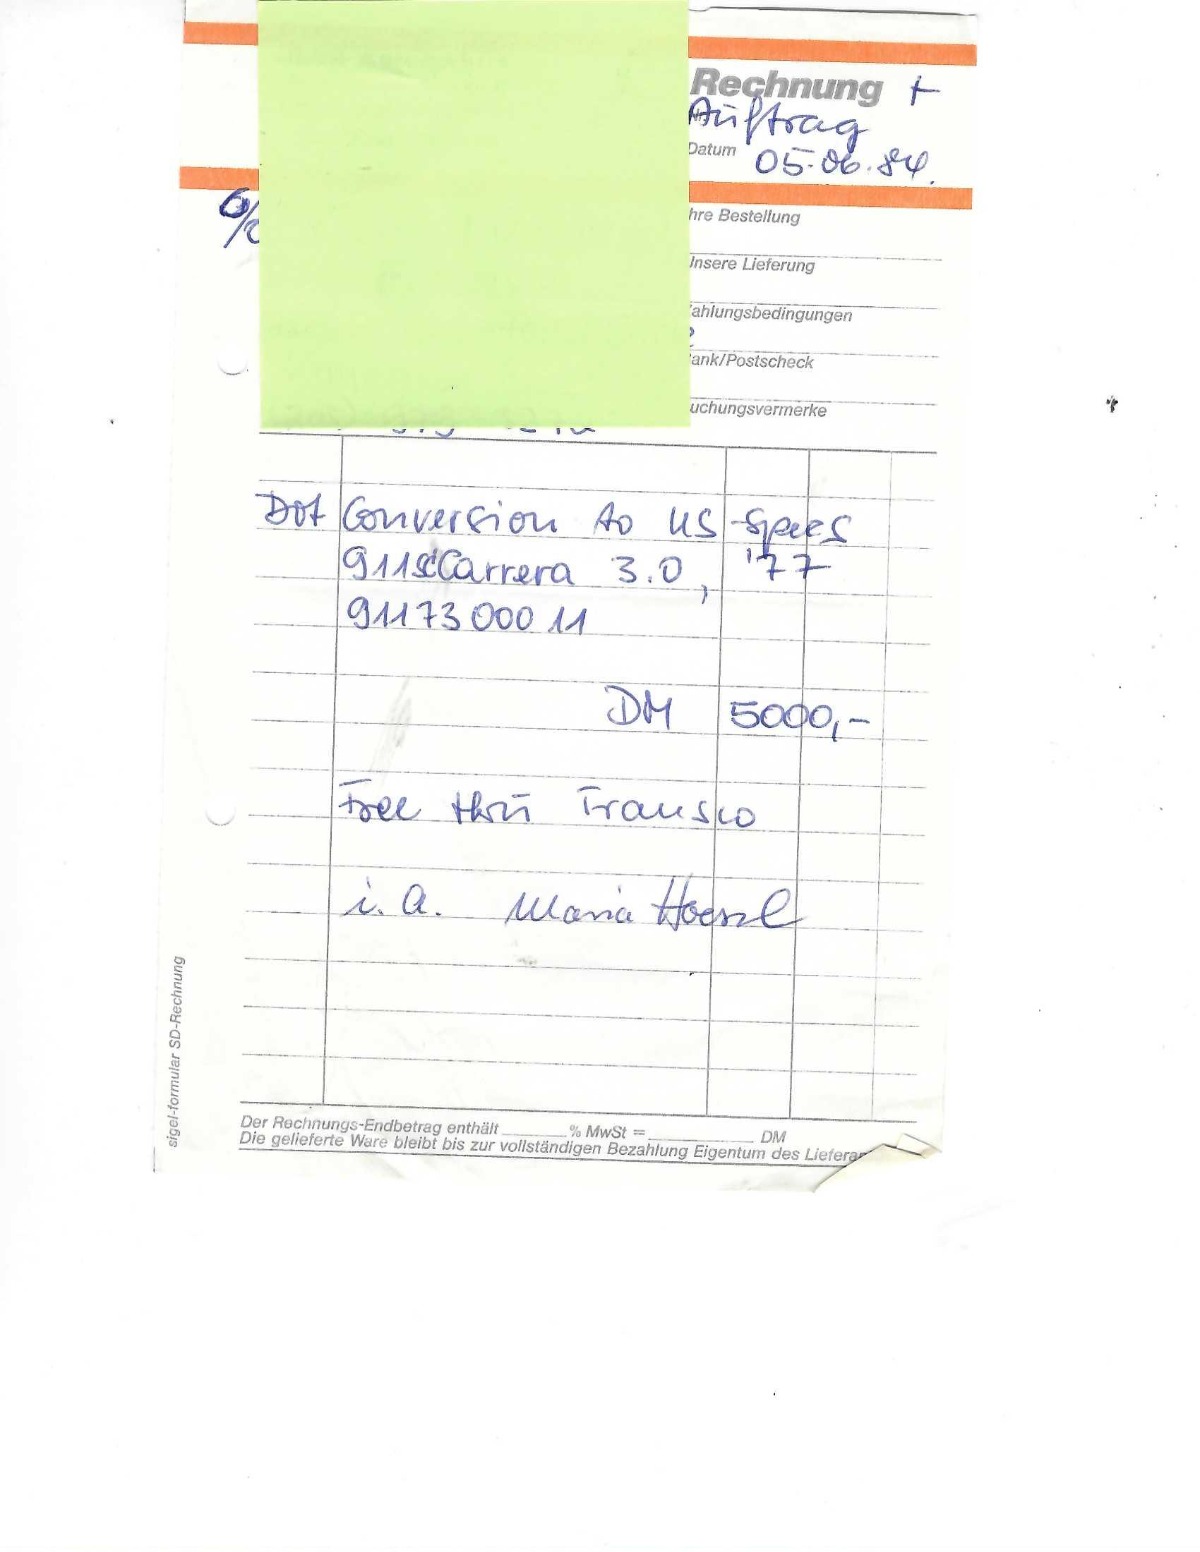 Rechnung +
Auftrag
Datum 05.06.84.
hre Bestellung
Insere Lieferung
ahlungsbedingungen
ank/Postscheck
uchungsvermerke
Dot Conversion to US-Specs
911scCarrera 3.0, '77
9117300011
DM 5000,-
Free thrū Transco
i. A. Maria
sigel-formular SD-Rechnung
Der Rechnungs-Endbetrag enthält ______ % MwSt = ______ DM
Die gelieferte Ware bleibt bis zur vollständigen Bezahlung Eigentum des Liefera